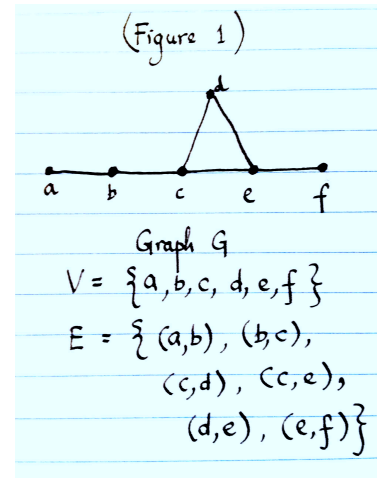 (Figure 1)
d
a b c e f
Graph G
V = {a,b,c, d,e,f}
E = {(a,b), (b,c),
(c,d), (c,e),
(d,e), (e,f)}